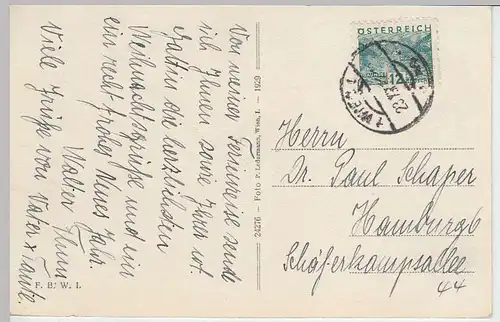 Von meiner Ferienreise sende
ich Ihnen sowie Ihrer w.
Gattin die herzlichsten
Weihnachtsgrüße und ein
ein recht frohes Neues Jahr.
Walter
Viele Grüße von Vater & Tante.
F. B. W. I.
24276 – Foto P. Ledermann, Wien, I. – 1929
ÖSTERREICH
12
1 WIEN 1
Herrn
Dr. Paul Schaper
Hamburg 6
Schäferkampsallee
44